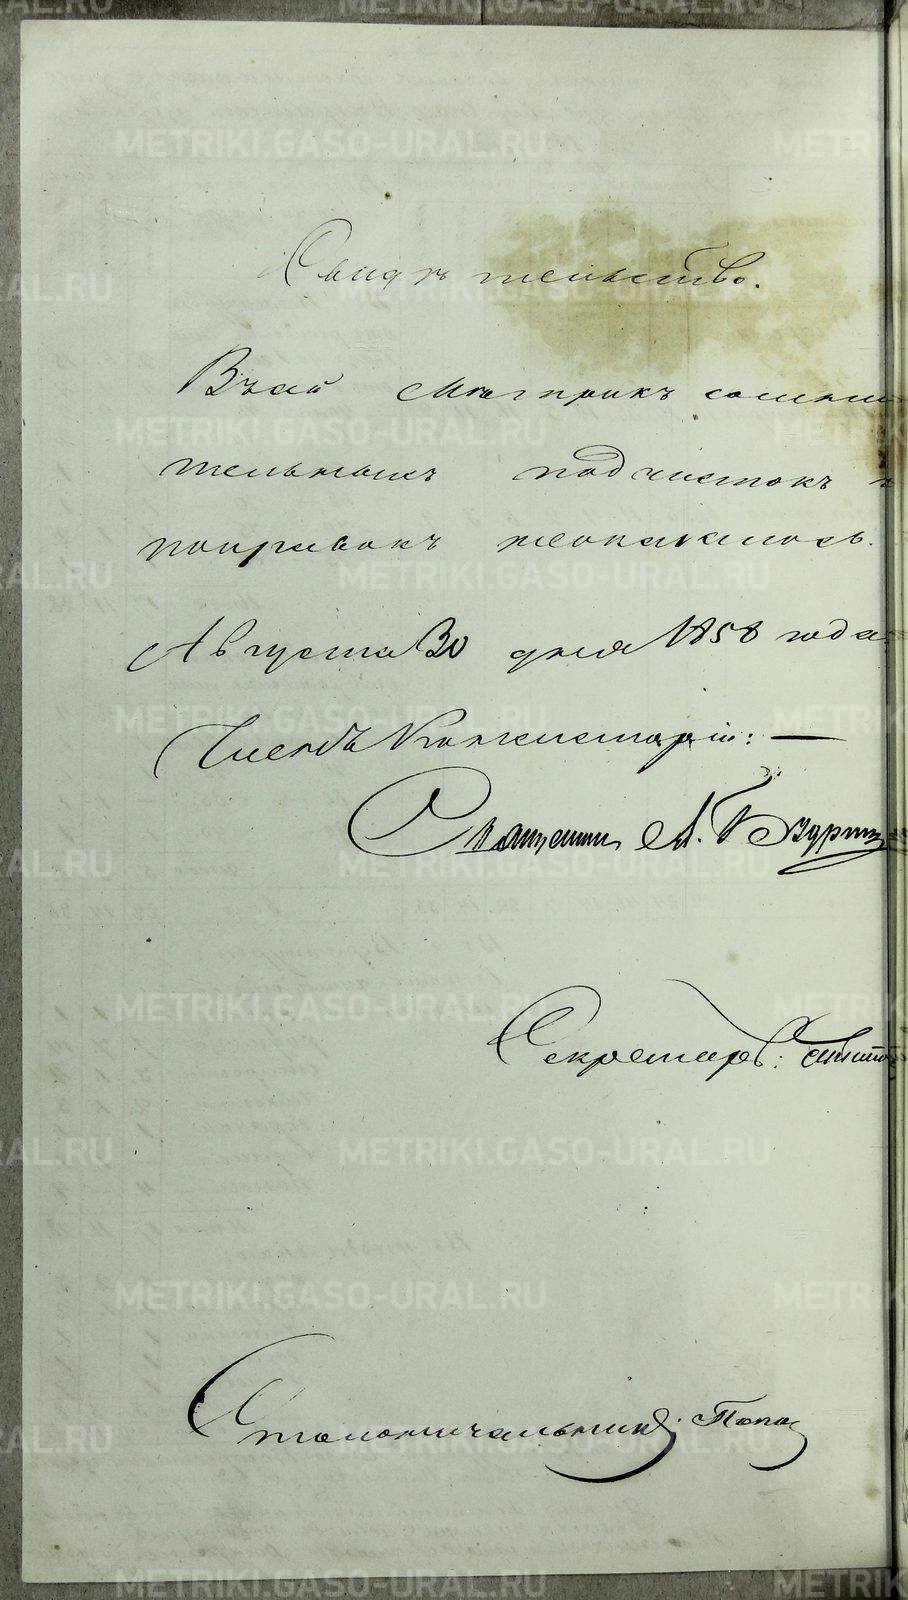 Свидѣтельство.
Въ сей Метрикѣ сомни
тельныхъ подчистокъ и
поправокъ неоказалось.
Августа 30 дня 1858 года
Членъ Консисторіи: —
Священникъ А.
Секретарь:
Столоначальникъ: Попов
METRIKI.GASO-URAL.RU